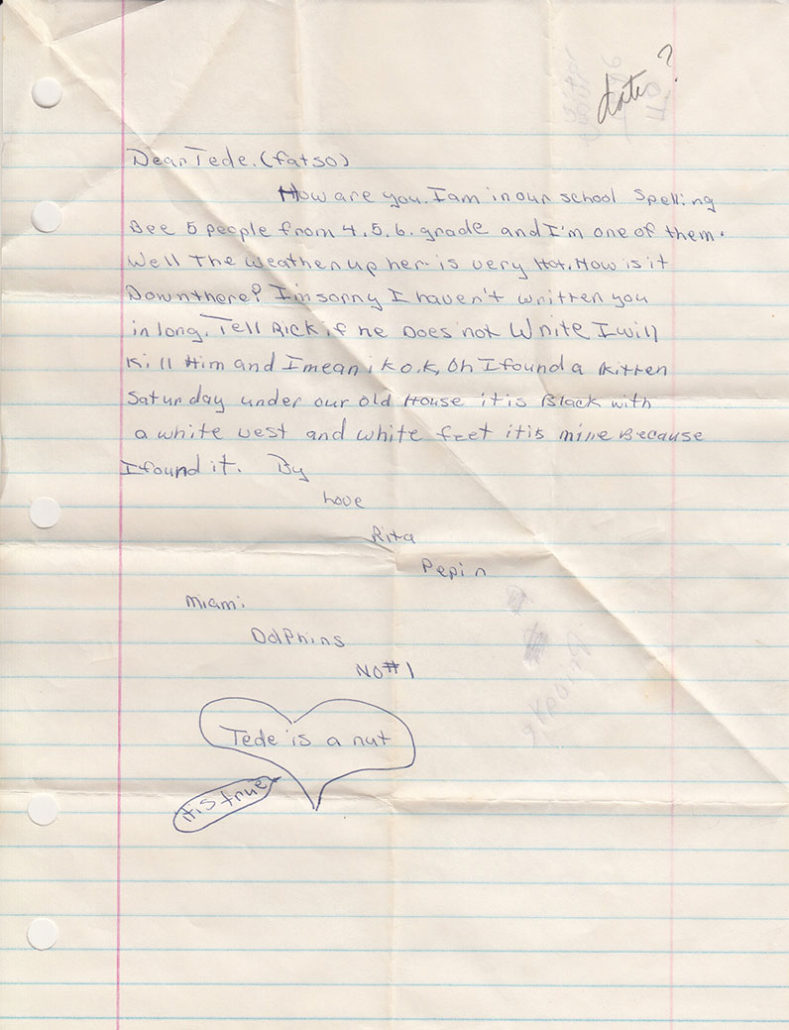 date?
Dear Tede. (fatso)
How are you. I am in our school Spelling
Bee 5 people from 4. 5. 6. grade and I'm one of them.
Well The weather up her is very Hot. How is it
Down there? I'm sorry I haven't written you
in long. Tell Rick if he Does not Write I will
Kill Him and I mean it o.k, Oh I found a Kitten
Saturday under our old House it is Black with
a white vest and white feet it is mine Because
I found it. By
Love
Rita
Pepin
Miami
Dolphins
No#1
Tede is a nut
it is true